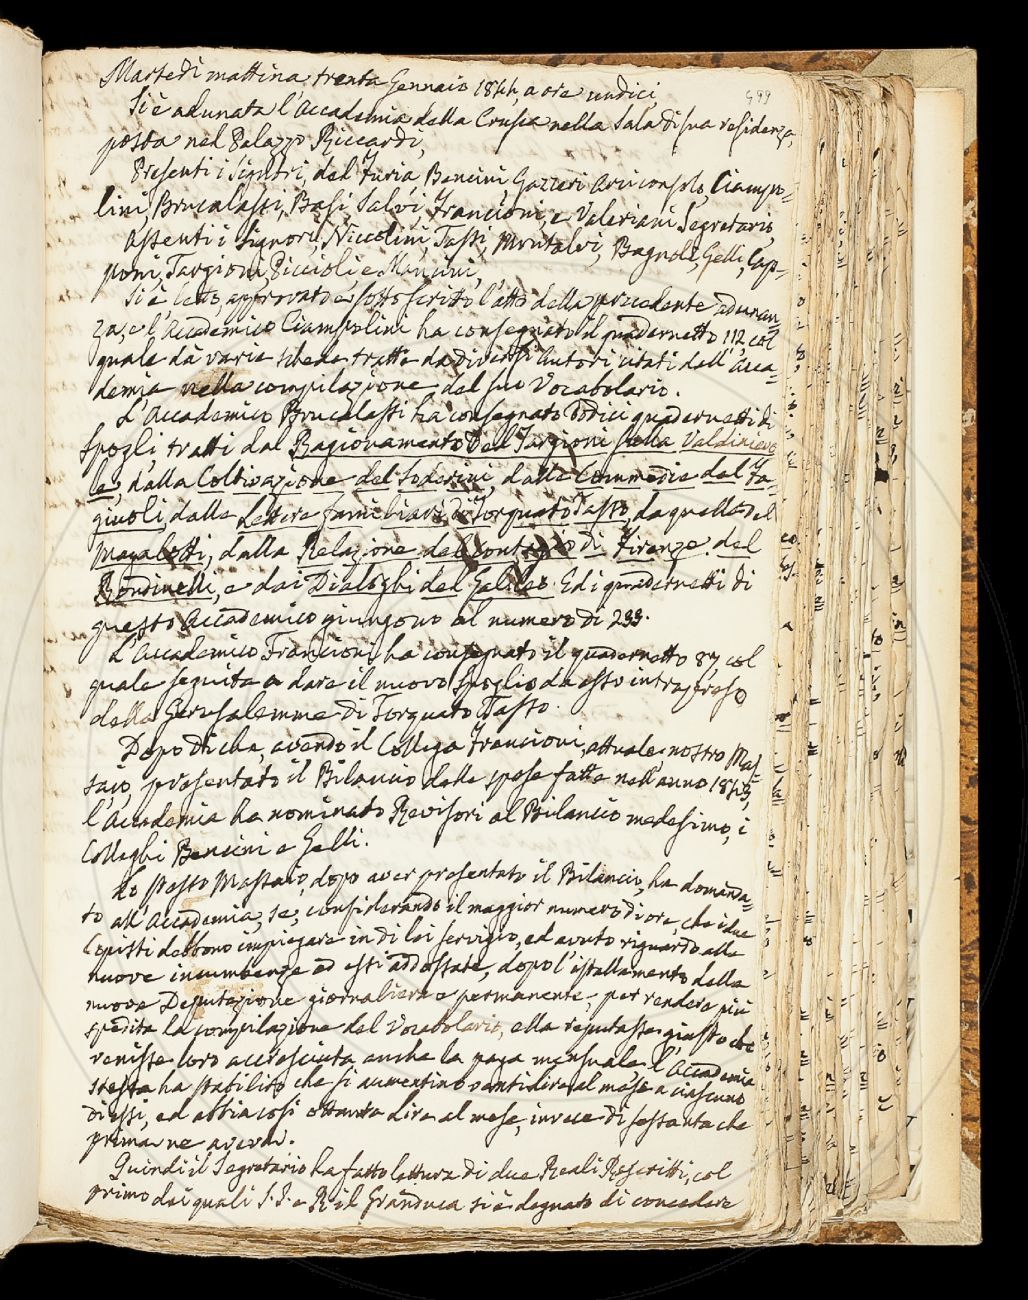 499
Martedì mattina, trenta Gennaio 1844, a ore undici,
Si è adunata l'Accademia della Crusca nella Sala di sua residenza,
posta nel Palazzo Riccardi,
Presenti i Signori, del Furia, Bencini, Gazzeri Arciconsolo, Ciampo=
lini, Brucalassi, Basi, Salvi, Francioni, e Valeriani Segretario,
Assenti i Signori, Niccolini, Tassi, Montalvi, Bagnoli, Gelli, Cap=
poni, Targioni, Piccioli e Mancini,
Si è letto, approvato e sottoscritto l'atto della precedente adunan=
za, e l'Accademico Ciampolini ha consegnato il quadernetto 112, col
quale dà varie schede tratte da diversi Autori citati dall'Acca=
demia nella compilazione del suo Vocabolario.
L'Accademico Brucalassi ha consegnato dodici quadernetti di
spogli tratti dal Ragionamento del Targioni sulla Valdinievo
le, dalla Coltivazione del Soderini, dalle Commedie del Fa=
giuoli, dalle Lettere familiari di Torquato Tasso, da quelle del
Magalotti, dalla Relazione del contagio di Firenze del
Rondinelli, e dai Dialoghi del Galileo. Ed i quadernetti di
questo Accademico giungono al numero di 233.
L'Accademico Francioni ha consegnato il quadernetto 87, col
quale seguita a dare il nuovo spoglio da esso intrapreso
della Gerusalemme di Torquato Tasso.
Dopo di che, avendo il Collega Francioni, attuale nostro Mas=
saio, presentato il Bilancio delle spese fatte nell'anno 1843,
l'Accademia ha nominato Revisori al Bilancio medesimo, i
Colleghi Bencini e Gelli.
Lo stesso Massaio, dopo aver presentato il Bilancio, ha domanda=
to all'Accademia, se, considerando il maggior numero di ore, che i due
Copisti debbono impiegare in di lei servigio, ed avuto riguardo alle
nuove incumbenze ad essi addossate, dopo l'istallamento della
nuova Deputazione giornaliera e permanente, per rendere più
spedita la compilazione del Vocabolario, ella reputasse giusto che
venisse loro accresciuta anche la paga mensuale. l'Accademia
stessa ha stabilito che si aumentino venti lire al mese a ciascuno
di essi, ed abbia così ottanta lire al mese, invece di sessanta che
prima ne aveva.
Quindi il Segretario ha fatto lettura di due Reali Rescritti, col
primo dei quali S. I. e R. il Granduca si è degnato di concedere